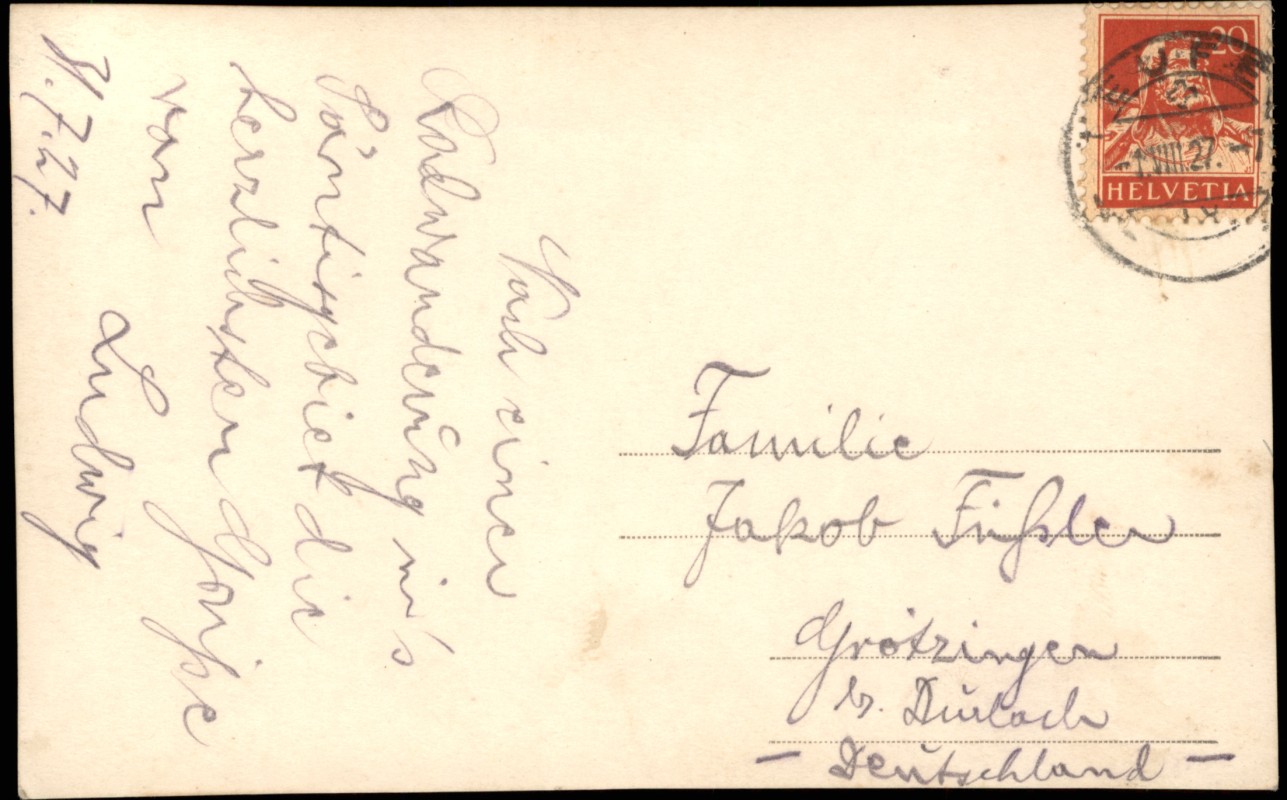 Nach einer
Radwanderung in's
Säntisgebiet die
herzlichsten Grüße
von
Ludwig
31.7.27.
20
HELVETIA
1.VIII.27.
Familie
Jakob Füßler
Grötzingen
b. Durlach
– Deutschland –